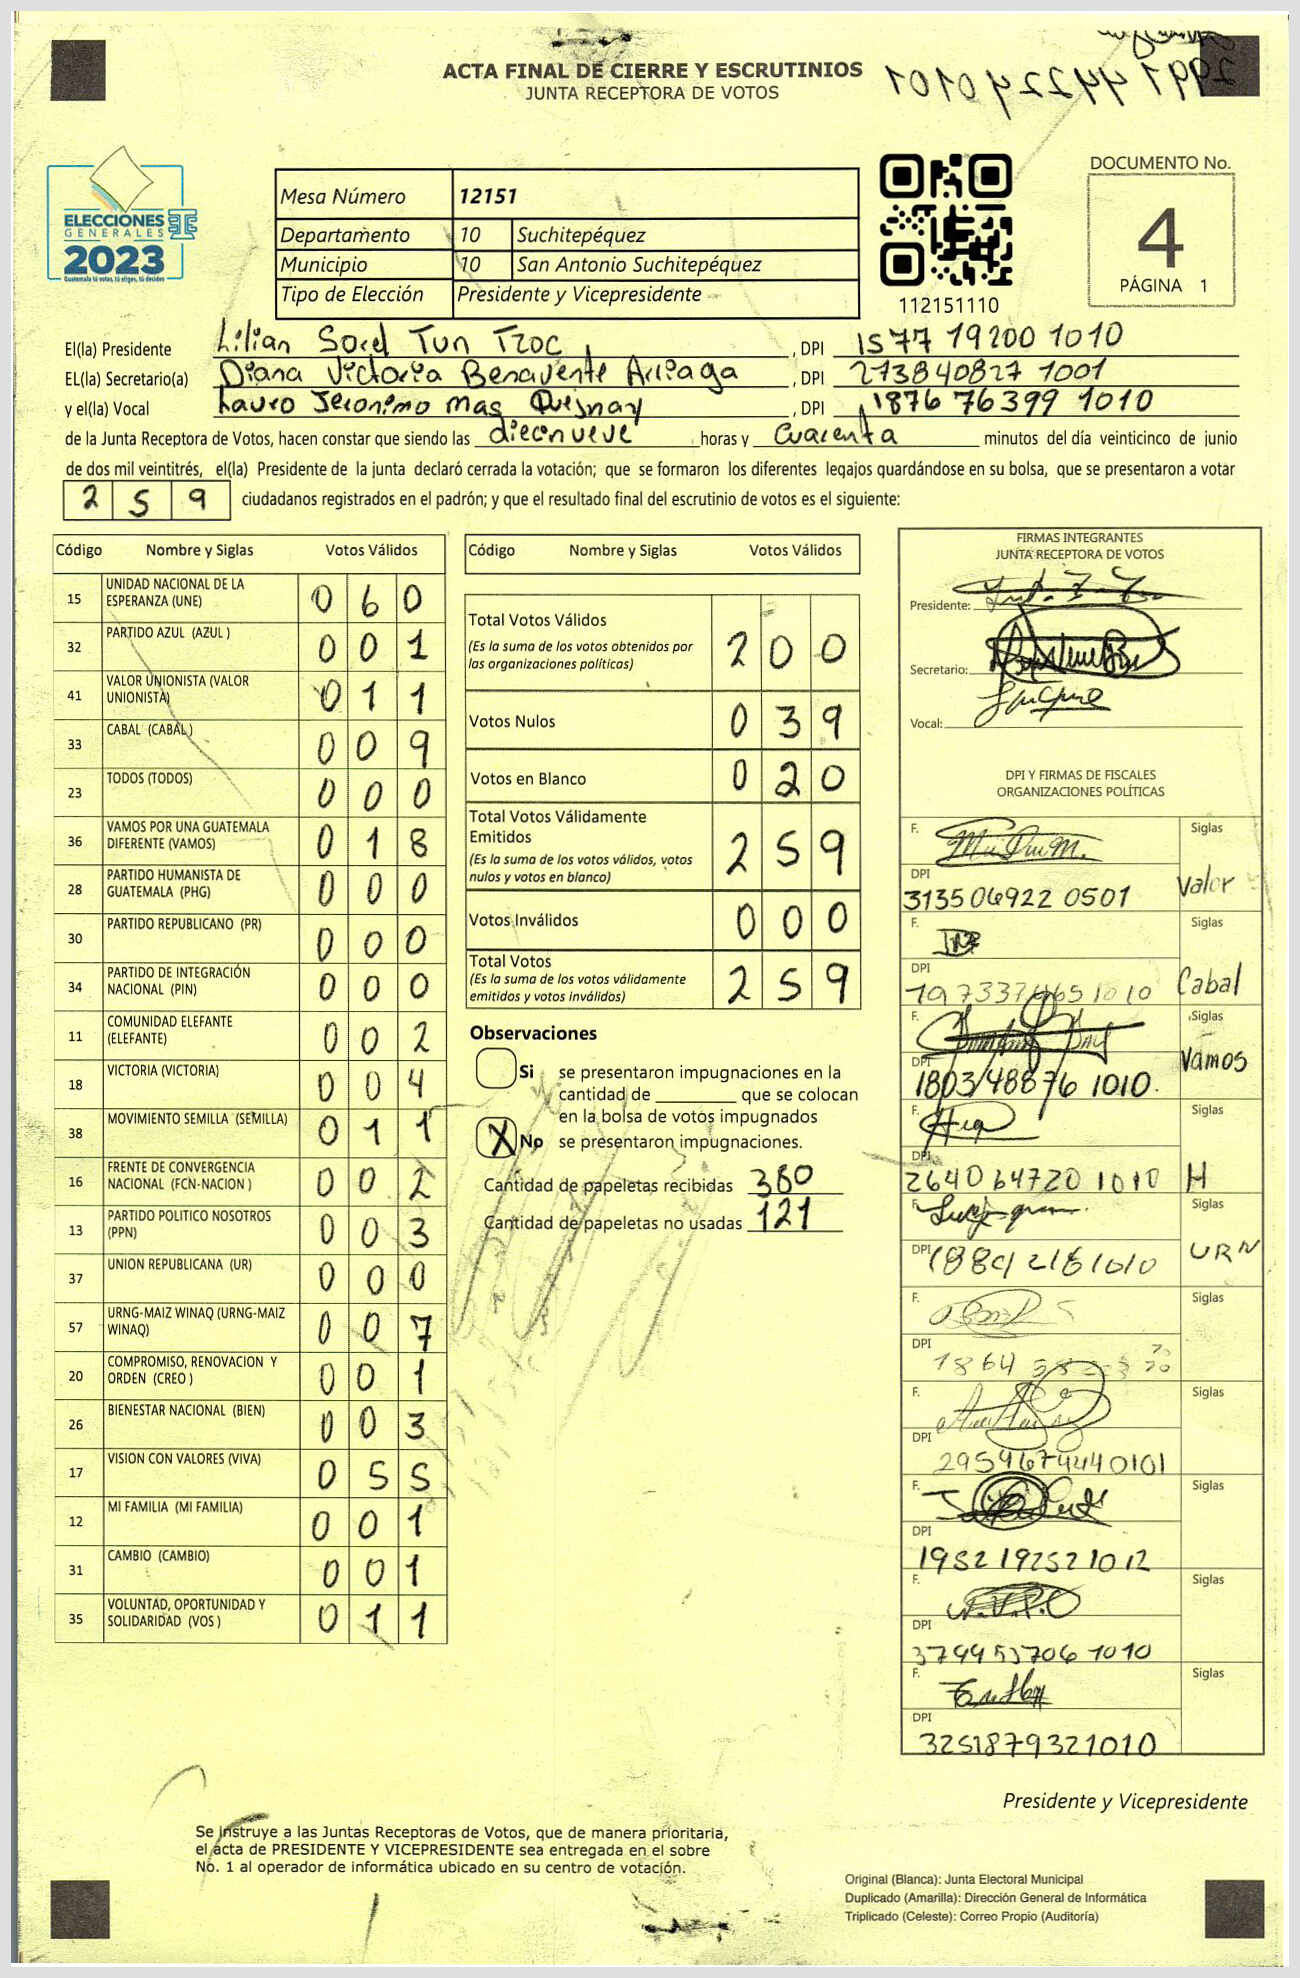 ACTA FINAL DE CIERRE Y ESCRUTINIOS
JUNTA RECEPTORA DE VOTOS
ELECCIONES
GENERALES
2023
Guatemala tú votas, tú eliges, tú decides
Mesa Número 12151
Departamento 10 Suchitepéquez
Municipio 10 San Antonio Suchitepéquez
Tipo de Elección Presidente y Vicepresidente
112151110
DOCUMENTO No.
4
PÁGINA 1
El(la) Presidente Lilian Tun Tzoc, DPI 1577 19200 1010
EL(la) Secretario(a) Diana Victoria Benavente Arriaga, DPI 273840827 1001
y el(la) Vocal Lauro Jeronimo mas, DPI 1876 76399 1010
de la Junta Receptora de Votos, hacen constar que siendo las diecinueve horas y Cuarenta minutos del día veinticinco de junio
de dos mil veintitrés, el(la) Presidente de la junta declaró cerrada la votación; que se formaron los diferentes legajos quardándose en su bolsa, que se presentaron a votar
2 5 9 ciudadanos registrados en el padrón; y que el resultado final del escrutinio de votos es el siguiente:
Código Nombre y Siglas Votos Válidos
15 UNIDAD NACIONAL DE LA ESPERANZA (UNE) 0 6 0
32 PARTIDO AZUL (AZUL ) 0 0 1
41 VALOR UNIONISTA (VALOR UNIONISTA) 0 1 1
33 CABAL (CABAL ) 0 0 9
23 TODOS (TODOS) 0 0 0
36 VAMOS POR UNA GUATEMALA DIFERENTE (VAMOS) 0 1 8
28 PARTIDO HUMANISTA DE GUATEMALA (PHG) 0 0 0
30 PARTIDO REPUBLICANO (PR) 0 0 0
34 PARTIDO DE INTEGRACIÓN NACIONAL (PIN) 0 0 0
11 COMUNIDAD ELEFANTE (ELEFANTE) 0 0 2
18 VICTORIA (VICTORIA) 0 0 4
38 MOVIMIENTO SEMILLA (SEMILLA) 0 1 1
16 FRENTE DE CONVERGENCIA NACIONAL (FCN-NACION ) 0 0 2
13 PARTIDO POLITICO NOSOTROS (PPN) 0 0 3
37 UNION REPUBLICANA (UR) 0 0 0
57 URNG-MAIZ WINAQ (URNG-MAIZ WINAQ) 0 0 7
20 COMPROMISO, RENOVACION Y ORDEN (CREO ) 0 0 1
26 BIENESTAR NACIONAL (BIEN) 0 0 3
17 VISION CON VALORES (VIVA) 0 5 5
12 MI FAMILIA (MI FAMILIA) 0 0 1
31 CAMBIO (CAMBIO) 0 0 1
35 VOLUNTAD, OPORTUNIDAD Y SOLIDARIDAD (VOS ) 0 1 1
Código Nombre y Siglas Votos Válidos
Total Votos Válidos 2 0 0
(Es la suma de los votos obtenidos por
las organizaciones políticas)
Votos Nulos 0 3 9
Votos en Blanco 0 2 0
Total Votos Válidamente
Emitidos 2 5 9
(Es la suma de los votos válidos, votos
nulos y votos en blanco)
Votos Inválidos 0 0 0
Total Votos 2 5 9
(Es la suma de los votos válidamente
emitidos y votos inválidos)
Observaciones
Si se presentaron impugnaciones en la
cantidad de ________ que se colocan
en la bolsa de votos impugnados
X No se presentaron impugnaciones.
Cantidad de papeletas recibidas 380
Cantidad de papeletas no usadas 121
FIRMAS INTEGRANTES
JUNTA RECEPTORA DE VOTOS
Presidente:
Secretario:
Vocal:
DPI Y FIRMAS DE FISCALES
ORGANIZACIONES POLÍTICAS
F. Siglas
DPI Valor
313506922 0501
F. Siglas
DPI Cabal
F. Siglas
DPI Vamos
1803148876 1010.
F. Siglas
DPI
264064720 1010 H
F. Siglas
DPI URN
F. Siglas
DPI
F. Siglas
DPI
2959467440101
F. Siglas
DPI
1952192521012
F. Siglas
DPI
F. Siglas
DPI
3251879321010
Presidente y Vicepresidente
Se instruye a las Juntas Receptoras de Votos, que de manera prioritaria,
el acta de PRESIDENTE Y VICEPRESIDENTE sea entregada en el sobre
No. 1 al operador de informática ubicado en su centro de votación.
Original (Blanca): Junta Electoral Municipal
Duplicado (Amarilla): Dirección General de Informática
Triplicado (Celeste): Correo Propio (Auditoría)